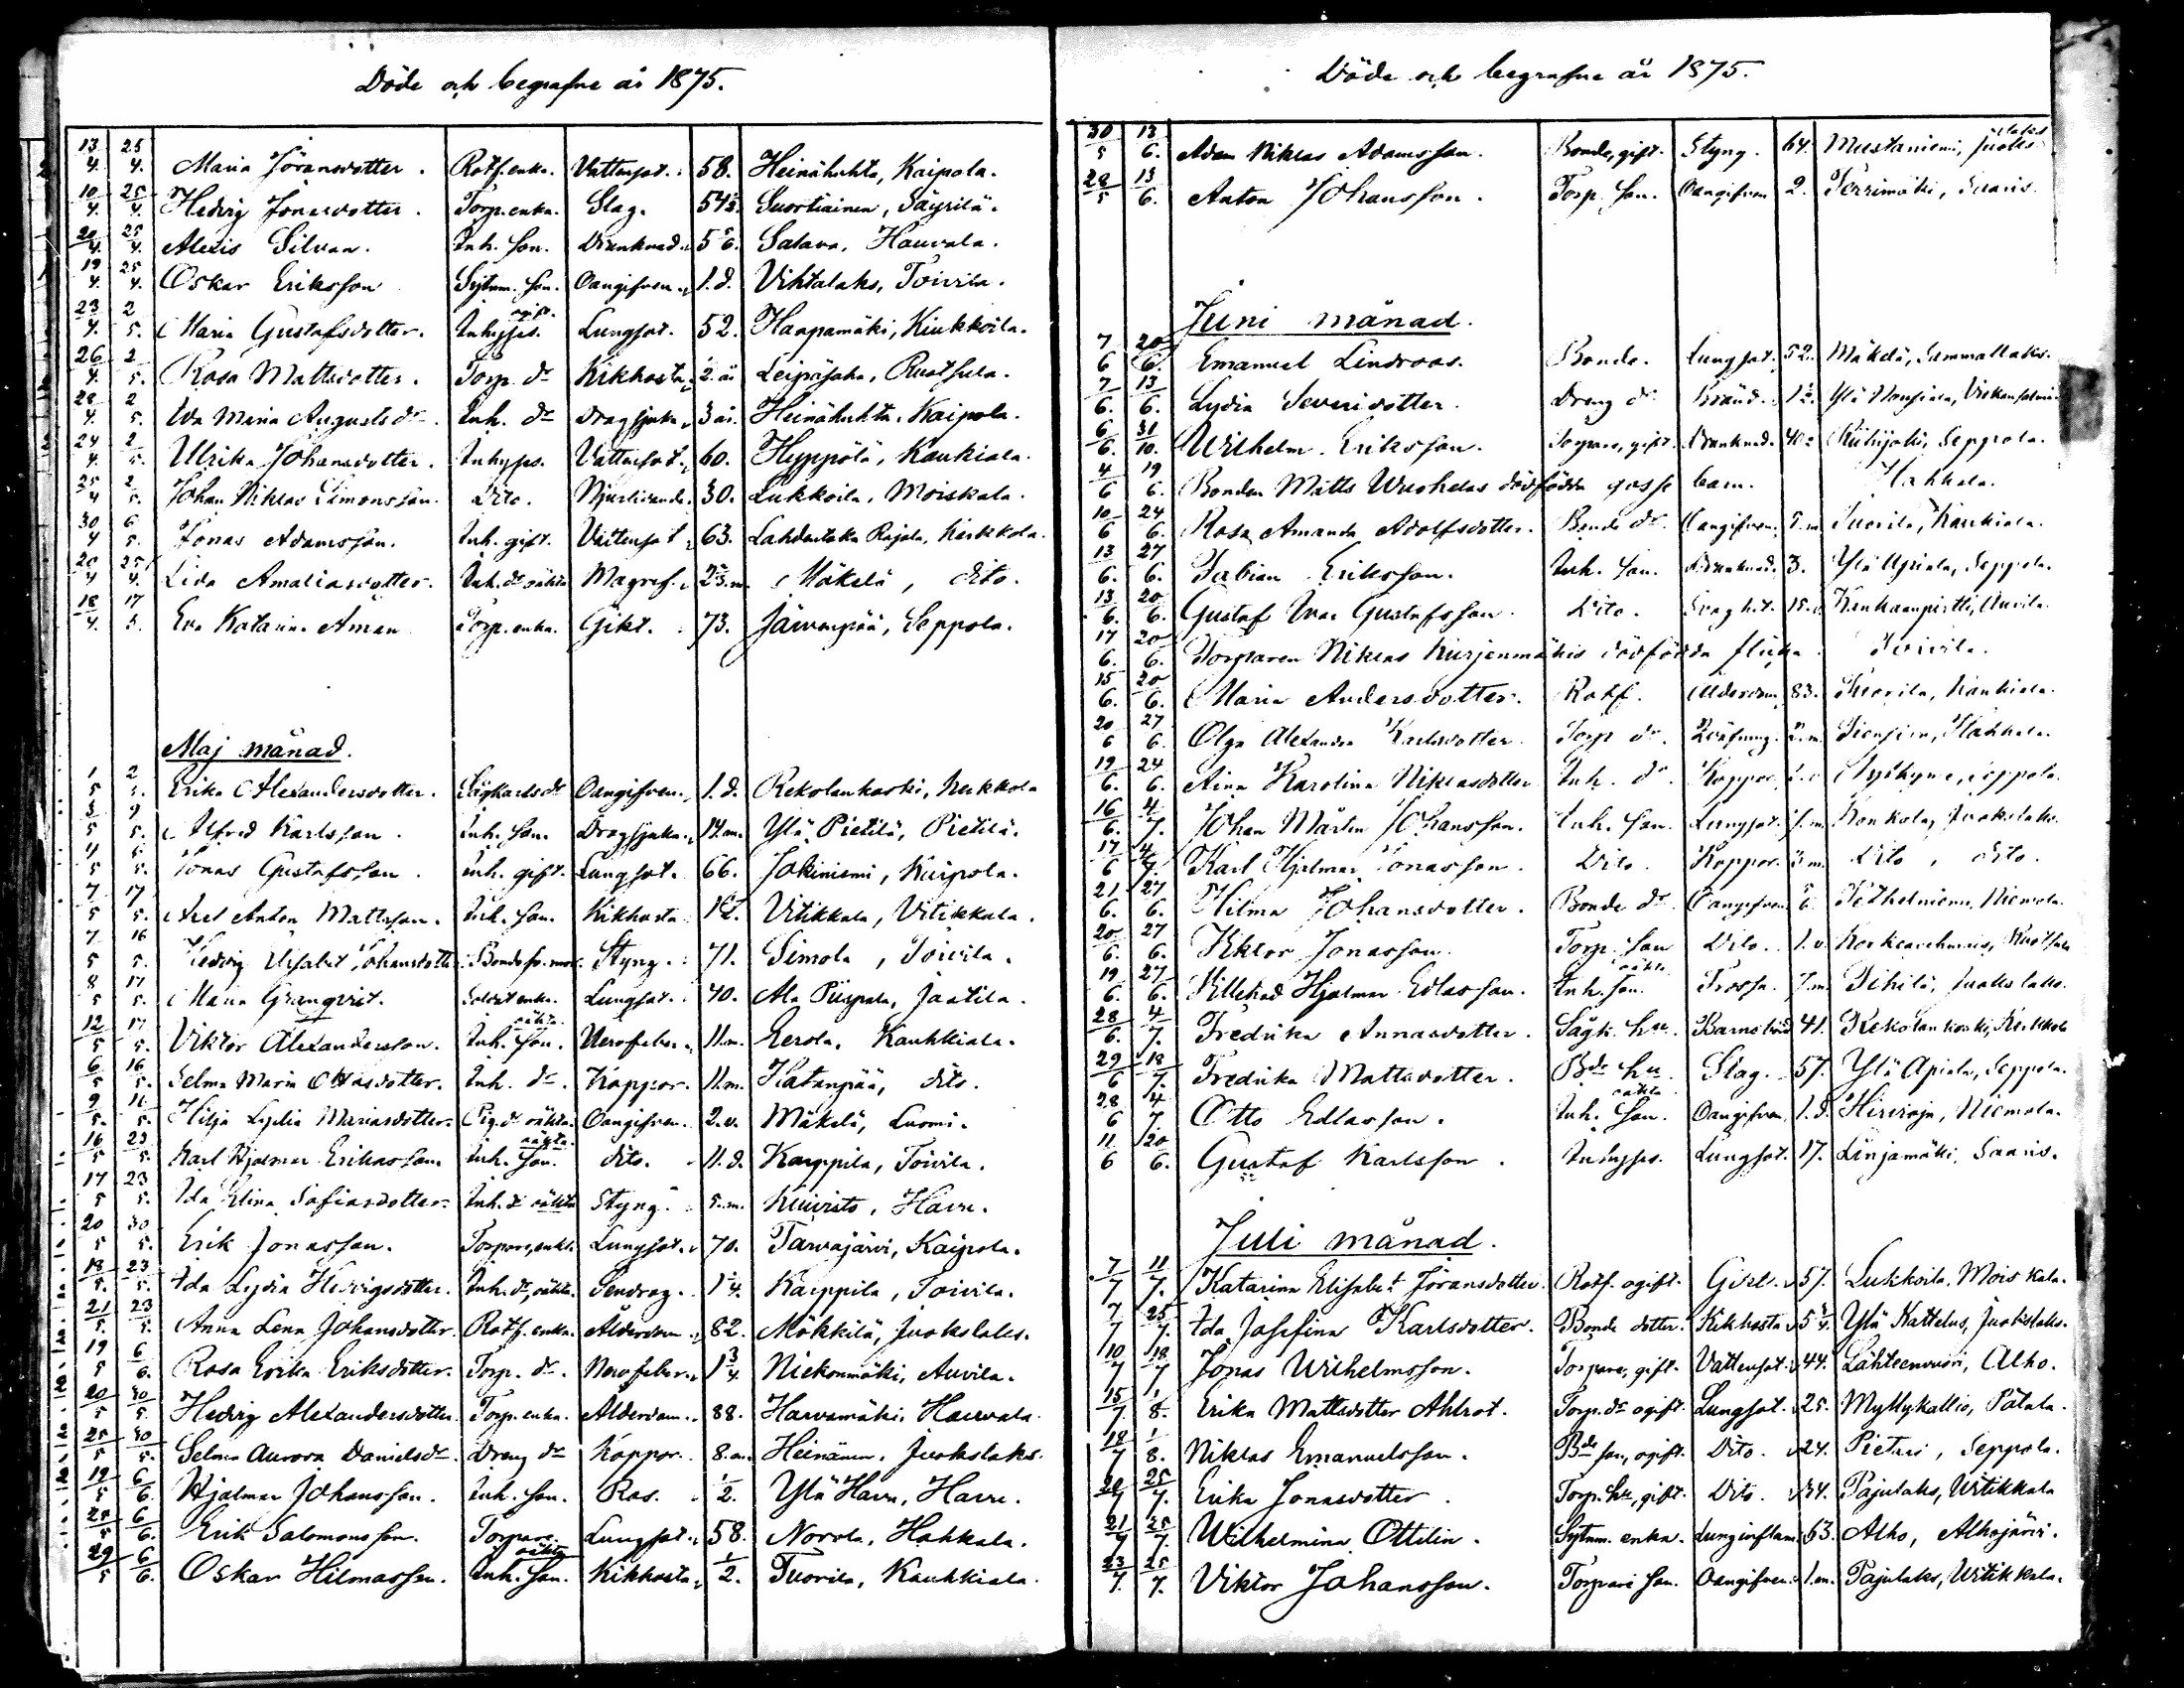 Döde och begrafne år 1875.
13/4. 25/4. Maria Jöransdotter. Rotf. enka. Vattusot. 58. Heinähuhta, Kaipola.
10/4. 25/4. Hedvig Jonasdotter. Torp. enka. Slag. 54½. Suortiainen, Säyrilä.
20/4. 25/4. Alexis Silvan. Inh. son. Drunknad. 5 Salava, Hauvala.
19/4. 25/4. Oskar Eriksson Sytnm. son. Oangifven. 1.d. Vihtalaks, Toivila.
23/4. 2/5. Maria Gustafsdotter. Inhyses. ogift. Lungsot. 52. Haapamäki, Kiukkoila.
26/4. 2/5. Rosa Mattsdotter. Torp. dr Kikhosta. 2. år Leipäjaha, Ruotsula.
28/4. 2/5. Eva Maria Augustsdr. Inh. dr Dragsjuka. 3 år. Heinähuhta. Kaipola.
24/4. 2/5. Ulrika Johansdotter. Inhyses. Vattusot. 60. Hyppölä, Kaukiala.
25/4 2/5. Johan Niklas Simonsson. Dito. Njurlidande. 30. Lukkoila, Moiskala.
30/4 6/5. Jonas Adamsson. Inh. gift. Vattusot. 63. Lahdentaka Rajala, Kerkkola.
20/4 25/4. Lida Amaliasdotter. Inh. dr oäkta Magref. Mäkelä, dito.
18/4. 17/5. Eva Katarina Åman Torp. enka. Gikt. 73. Järvenpää, Seppola.
Maj månad.
1/5 2/5. Erika Alexandersdotter. Sågkarls dr Oangifven. 1.d. Rekolankoski, Kerkkola
3/5 9/5. Alfred Karlsson. Inh. son. Dragsjuka. 14.m. Ylä Pietilä, Pietilä.
4/5 5/5. Jonas Gustafsson. Inh. gift. Lungsot. 66. Jokiniemi, Kuipola.
7/5 17/5. Axel Anton Mattsson. Inh. son. Kikhosta. 1½. Vitikkala, Vitikkala.
7/5 16/5. Hedvig Elisabet Johansdotter. Bondefr. mor. Styng. 71. Simola, Toivila.
8/5 17/5. Maria Granqvist. Soldat enka. Lungsot. 40. Ala Piispala, Jaatila.
12/5 17/5. Viktor Alexandersson. Inh. son. oäkta. Nervfeber. 11.m. Eerola, Kauhkiala.
6/5 16/5. Selma Maria Ottasdotter. Inh. dr. Koppor. 11.m. Katanpää, dito.
9/5. 16/5. Hilja Lydia Mariasdotter. Pig. dr oäkta. Oangifven. 2.v. Mäkelä, Luomi.
16/5 23/5. Karl Hjalmar Erikasson. Inh. son. oäkta. dito. 11.d. Karppila, Toivila.
17/5 23/5. Ida Elina Sofiasdotter. Inh. dr oäkta Styng. 5.m. Kuivisto, Havu.
20/5 30/5. Erik Jonasson. Torpare, enkl. Lungsot. 70. Tarvajärvi, Kaipola.
18/5. 23/5. Ida Lydia Hedvigsdotter. Inh. dr, oäkta. Sendrag. 1¼. Karppila, Toivila.
21/5. 23/5. Anna Lena Johansdotter. Rotf. enka. Ålderdom. 82. Mökkilä, Juokslaks.
19/5 6/6. Rosa Erika Eriksdotter. Torp. dr. Nervfeber. 1¾. Niekonmäki, Auvila.
20/5 30/5. Hedvig Alexandersdotter. Torp. enka. Ålderdom. 88. Harvamäki, Hauvala.
25/5 30/5. Selma Aurora Danielsdr. Dreng dr Koppor. 8.m. Heinänen, Juokslaks.
19/5 6/6. Hjalmar Johansson. Inh. son. Ros. ½. Ylä Havu, Havu.
25/5 6/6. Erik Salomonsson. Torpare. Lungsot. 58. Norola, Hahkala.
29/5 6/6. Oskar Hilmasson. Inh. son. oäkta Kikhosta. ½. Tuorila, Kauhkiala.
Döde och begrafne år 1875.
30/5 13/6. Adam Niklas Adamsson. Bonde, gift. Styng. 64. Mustaniemi, Juokslaks
28/5 13/6. Anton Johansson. Torp. son. Oangifven 2. Terrimäki, Saaris.
Juni månad.
7/6 20/6. Emanuel Lindroos. Bonde. Lungsot. 52. Mäkelä, Sammallaks.
7/6. 13/6. Lydia Severisdotter. Dreng dr. Bränd. 1½.
6/6. 31/10. Wilhelm Eriksson. Torpare, gift. Drunknad. 40. Riihijoki, Seppola.
4/6 19/6. Bonden Matts Wuohelas dödfödda gosse barn. Hahkala.
10/6 24/6. Rosa Amanda Adolfsdotter. Bonde dr. Oangifven. 5.m Tuorila, Kaukiala.
13/6. 27/6. Fabian Eriksson. Inh. son. Drunknad. 3. Ylä Apiala, Seppola.
13/6. 20/6. Gustaf Ivar Gustafsson. Dito. Auvila.
17/6. 20/6. Torparen Niklas Kurjenmäkis dödfödda flicka. Toivila.
15/6. 20/6. Maria Andersdotter. Rotf. Ålderdom. 83. Tuorila, Kaukiala.
20/6 27/6. Olga Alexandra Karlsdotter. Torp dr. 2.m. Hahkala.
19/6. 24/6. Aina Karolina Niklasdotter Inh. dr. Koppor. Seppola.
16/6. 4/7. Johan Mårten Johansson. Inh. son. Lungsot. Konkola, Juokslaks.
17/6 4/7. Karl Hjalmar Jonasson Dito. Koppor. Dito, dito.
21/6. 27/6. Hilma Johansdotter. Bonde dr. Oangifven 6. Petkelniemi, Niemola.
20/6. 27/6. Viktor Jonasson. Torp. son Dito. 1.v.
19/6. 27/6. Willehad Hjalmar Edlasson. Inh. son. oäkta Trossa. 7.m. Pihilä, Juokslaks.
28/6. 4/7. Fredrika Annasdotter. Sågk. hu. Barnsbörd 41. Rekolankoski, Kerkkola
29/6 18/7. Fredrika Mattsdotter. Bde hu. Slag. 57. Ylä Apiala, Seppola.
28/6 4/7. Otto Edlasson. Inh. son. oäkta Oangifven. 1.d. Hirvioja, Niemola.
11/6 20/6. Gustaf Karlsson. Inhyses. Lungsot. 17. Linjamäki, Saaris.
Juli månad.
7/7 11/7. Katarina Elisabet Jöransdotter. Rotf. ogift. 57. Lukkoila, Moiskala.
7/7 25/7. Ida Josefina Karlsdotter. Bonde dotter. Kikhosta 5¼. Ylä Kattelus, Juokslaks.
10/7 18/7 Jonas Wilhelmsson. Torpare, gift. Vattusot. 44. Lähteenvuori, Alho.
15/7. 1/8. Erika Mattsdotter Ahlrot. Torp. dr ogift. Lungsot. 25. Myllykallio, Pälälä.
18/7 1/8. Niklas Emanuelsson. Bde son, ogift. Dito. 24. Pietari, Seppola.
20/7 25/7. Erika Jonasdotter. Torp. hu, gift. Dito. 34. Pajulaks, Witikkala
21/7 25/7. Wilhelmina Ottilin. Sytnm. enka. Lunginflam. 63. Alho, Alhojärvi.
23/7. 25/7. Viktor Johansson. Torpari son. Oangifven. 1.m. Pajulaks, Witikkala.